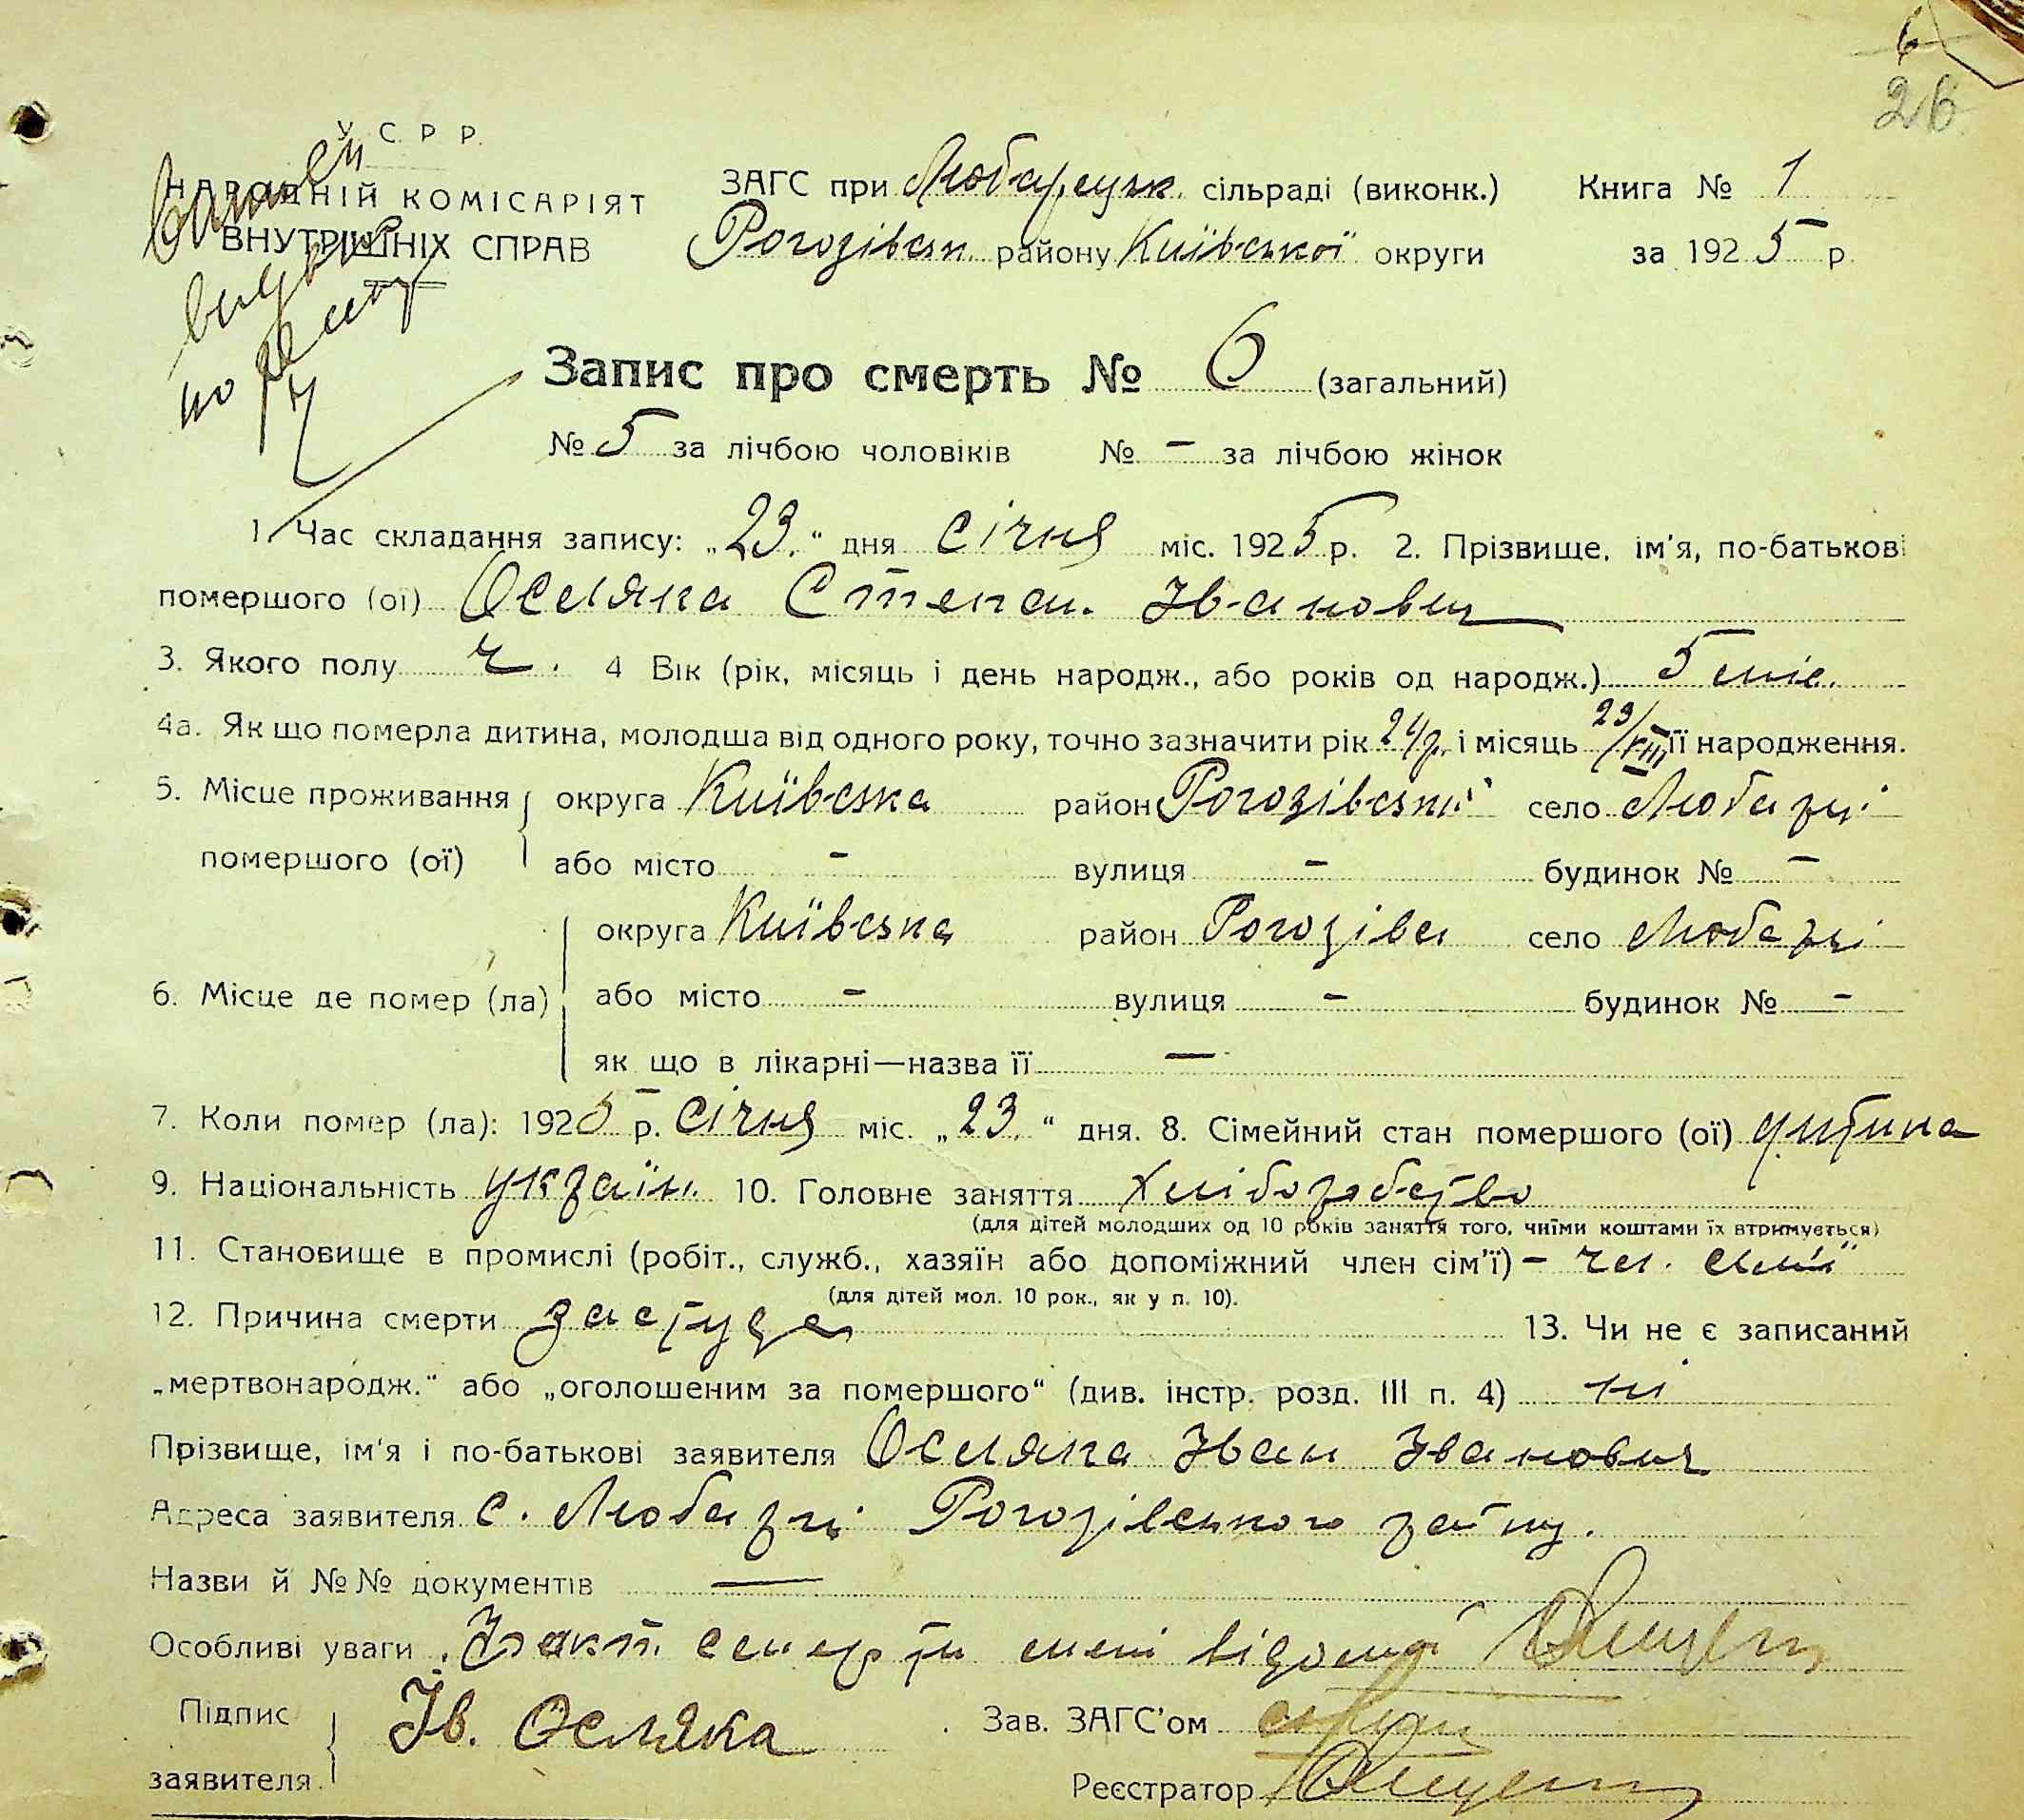 6
26
У. С. Р. Р.
НАРОДНІЙ КОМІСАРІЯТ
ВНУТРІШНІХ СПРАВ
ЗАГС при Любарецьк. сільраді (виконк.) Книга № 1
Рогозівськ. району Київської округи за 1925 р.
Запис про смерть № 6 (загальний)
№ 5 за лічбою чоловіків № - за лічбою жінок
1. Час складання запису: „23.“ дня Січня міс. 1925 р. 2. Прізвище, ім'я, по-батькові
помершого (ої) Осмяка Степан Іванович
3. Якого полу ч. 4 Вік (рік, місяць і день народж., або років од народж.) 5 міс.
4а. Як що померла дитина, молодша від одного року, точно зазначити рік 24 р. і місяць 23/VIII її народження.
5. Місце проживання округа Київська район Рогозівський село Любарці
помершого (ої) або місто - вулиця - будинок № -
округа Київська район Рогозівс село Любарці
6. Місце де помер (ла) або місто - вулиця - будинок № -
як що в лікарні—назва її —
7. Коли помер (ла): 1925 р. Січня міс. „23.“ дня. 8. Сімейний стан помершого (ої) дитина
9. Національність україн. 10. Головне заняття Хліборобство
(для дітей молодших од 10 років заняття того, чиїми коштами їх втримується)
11. Становище в промислі (робіт., служб., хазяїн або допоміжний член сім'ї) - чл. сім'ї
(для дітей мол. 10 рок., як у п. 10).
12. Причина смерти застуда 13. Чи не є записаний
„мертвонародж.“ або „оголошеним за помершого“ (див. інстр. розд. III п. 4) ні
Прізвище, ім'я і по-батькові заявителя Осмяка Іван Іванович
Адреса заявителя с. Любарці Рогозівського району.
Назви й №№ документів —
Особливі уваги Факт смерти мені відомий
Підпис Ів. Осмяка Зав. ЗАГС'ом
заявителя Реєстратор